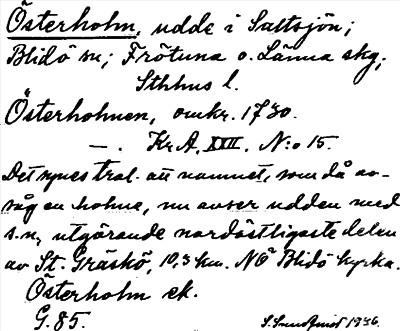 Österholm, udde i Saltsjön;
Blidö sn; Frötuna o. Länna skg;
Sthlms l.
Österholmen, omkr. 1730.
—. Kr.A. XXIII. N:o 15.
Det synes trol. att namnet, som då av-
såg en holme, nu avser udden med
s.n., utgörande nordöstligaste delen
av St. Graskö, 10,3 km. NÖ Blidö kyrka.
Österholm ek.
G. 85.
1936.